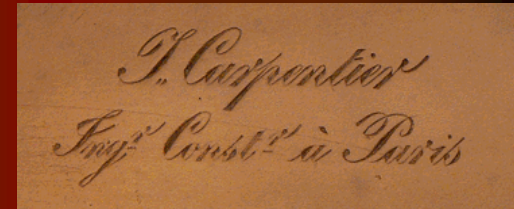 J. Carpentier
Ingr Constr à Paris